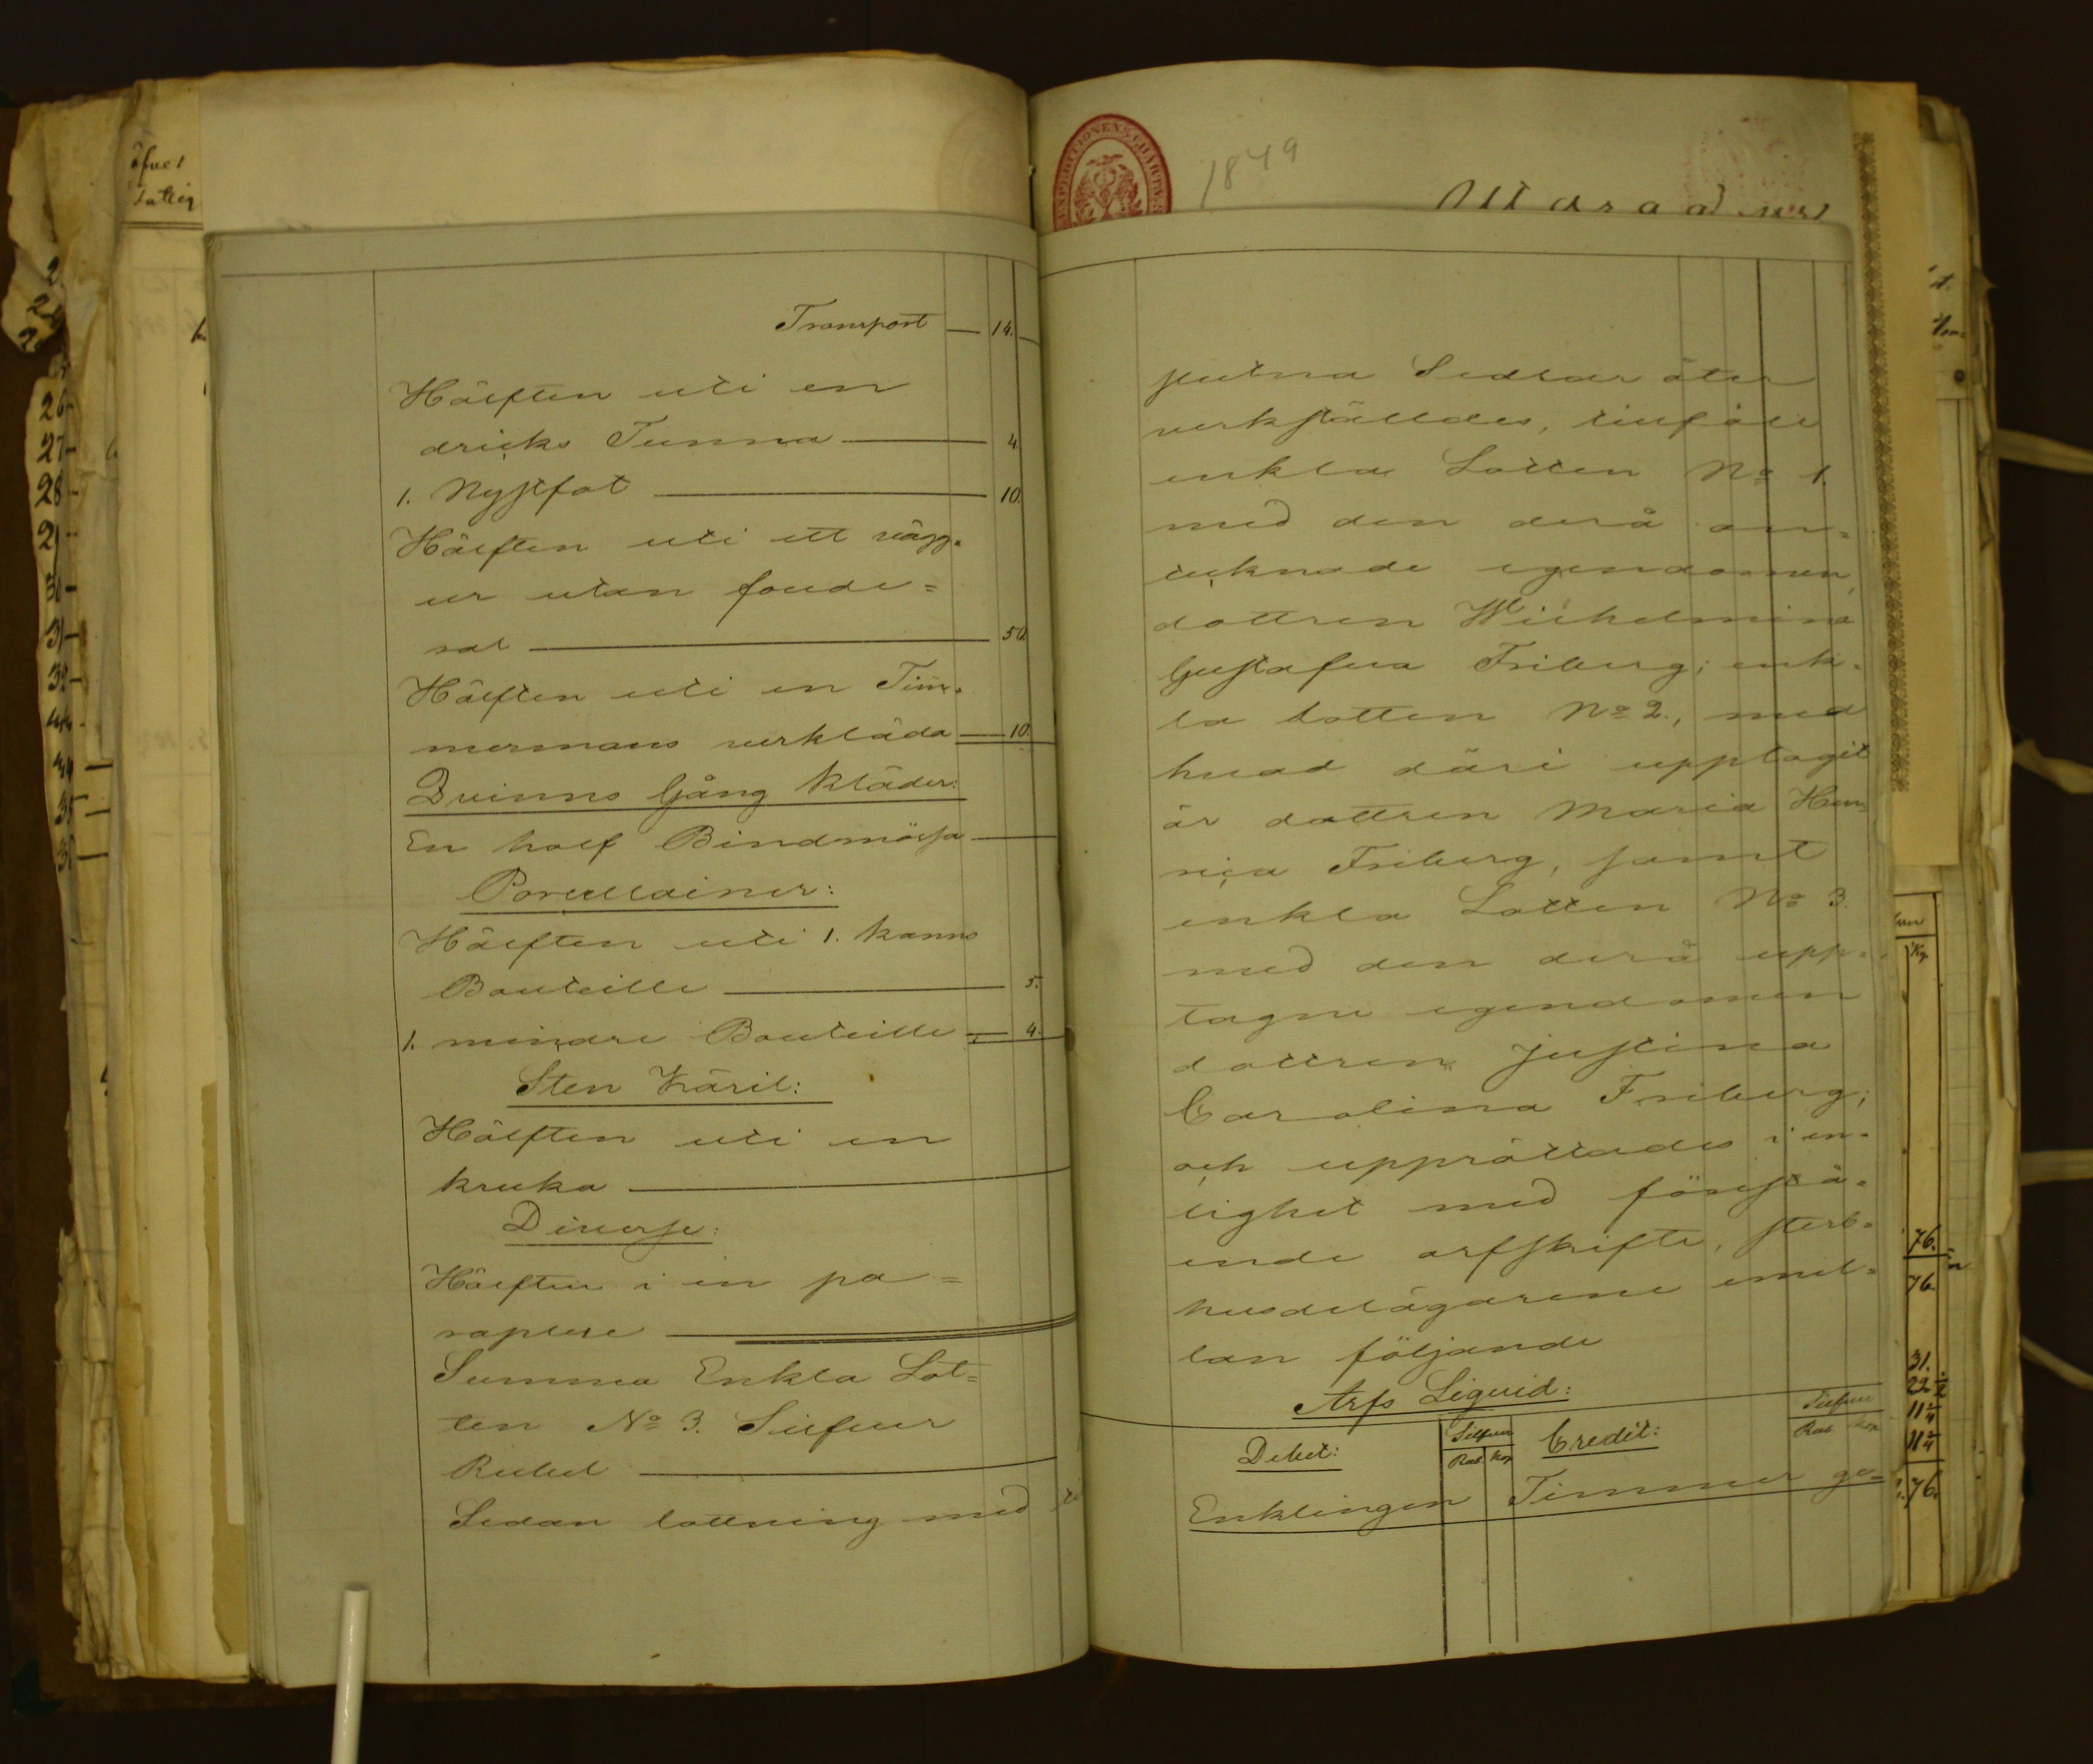 Transport — 14.
Hälften uti en
dricks Tunna — 4
1. Nystfat — 10.
Hälften uti ett vägg-
ur utan foude=
ral — 50.
Hälften uti en Tim-
mermans verkläda — 10.
Qvinns Gång Kläder:
En half Bindmössa —
Porcellainer:
Hälften uti 1. kanns
Bouteille — 5.
1. mindre Bouteille — 4.
Sten Käril:
Hälften uti en
kruka —
Diverse:
Hälften i en pa=
raplue —
Summa Enkla Lot=
ten No 3. Silfver
Rubel —
Sedan lottning med
1849
slutna Sedlar äter
verkställdes, tillföll
enkla Lotten No 1.
med den derå an-
teknade egendomen,
dottren Wilhelmina
Gustafva Friberg; enk-
la lotten No 2., med
hvad däri upptagit
är dottren Maria Hen-
rica Friberg, samt
enkla Lotten No 3.
med den derå upp-
tagne egendomen
dottren Justina
Carolina Friberg;
och upprättades i en-
lighet med förestå-
ende arfskifte, sterb-
husdelägarene emel-
lan följande
Arfs Liquid:
Debet: Silfver Rub. kop Credit: Silfver Rub. kop
Enklingen Timmer ge=
26
27
28
76.
76
31.
76.